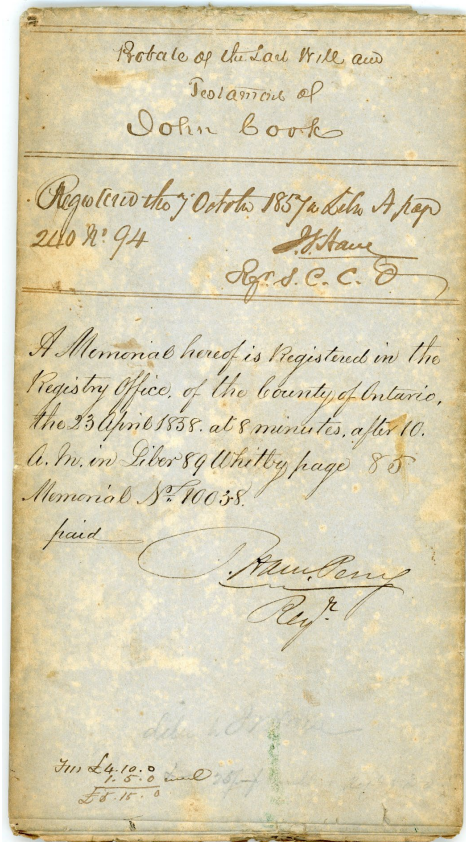 Probate of the Last Will and
Testament of
John Cook
Registered this 7 October 1857 in Liber A page
240 No 94
Regr. S. C. C. O
A Memorial hereof is Registered in the
Registry Office, of the County of Ontario,
the 23 April 1858. at 8 minutes, after 10.
A. M. in Liber 89 Whitby page 85
Memorial No. 10038.
paid
J. Ham. Perry
Regr.
Fees £4.10.0
1.5.0
£5.15.0